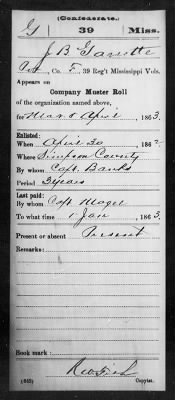 (Confederate.)
G 39 Miss.
J B Garette
Pvt, Co. F, 39 Reg't Mississippi Vols.
Appears on
Company Muster Roll
of the organization named above,
for Mar & April, 1863.
Enlisted:
When April 30, 1862
Where Simpson County
By whom Capt. Banks
Period 3 years
Last paid:
By whom Capt.
To what time 1 Jan, 1863.
Present or absent Present
Remarks:
Book mark:
(642) Copyist.